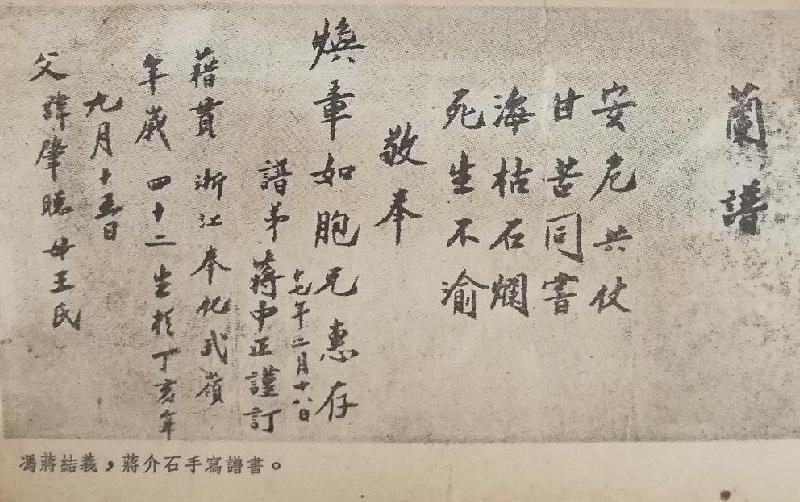 蘭譜
安危共仗
甘苦同嘗
海枯石爛
死生不渝
敬奉
煥章如胞兄惠存
譜弟蔣中正謹訂
十七年二月十八日
籍貫 浙江奉化武嶺
年歲 四十二 生於丁亥年
九月十五日
父諱肇聰 母王氏
馮蔣結義，蔣介石手寫譜書。